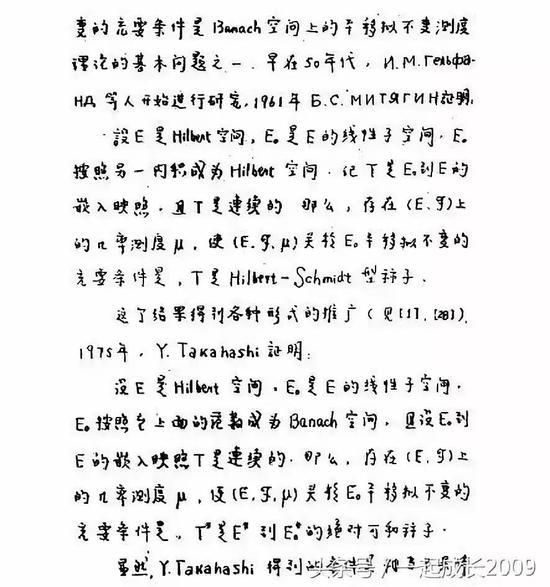 变的充要条件是 Banach 空间上的平移拟不变测度
理论的基本问题之一. 早在50年代, И.М.Гельфа-
НД 等人开始进行研究, 1961年 Б.С.МИТЯГИН 証明:
設 E 是 Hilbert 空间, E₀ 是 E 的线性子空间. E₀
按照另一内积成为 Hilbert 空间. 记 T 是 E₀ 到 E 的
嵌入映照. 且 T 是連续的 那么, 存在 (E, 𝓕) 上
的几率测度 μ, 使 (E, 𝓕, μ) 关於 E₀ 平移拟不变的
充要条件是, T 是 Hilbert-Schmidt 型祘子.
这个结果得到各种形式的推广 (见[1], [28]).
1975年, Y. Takahashi 証明:
设 E 是 Hilbert 空间, E₀ 是 E 的线性子空间.
E₀ 按照它上面的范数成为 Banach 空间, 且设 E₀ 到
E 的嵌入映照 T 是連续的. 那么, 存在 (E, 𝓕) 上
的几率测度 μ, 使 (E, 𝓕, μ) 关於 E₀ 平移拟不变的
充要条件是, T* 是 E* 到 E₀* 的绝对可和祘子.
虽然, Y. Takahashi 得到
头条号 / 一起成长2009